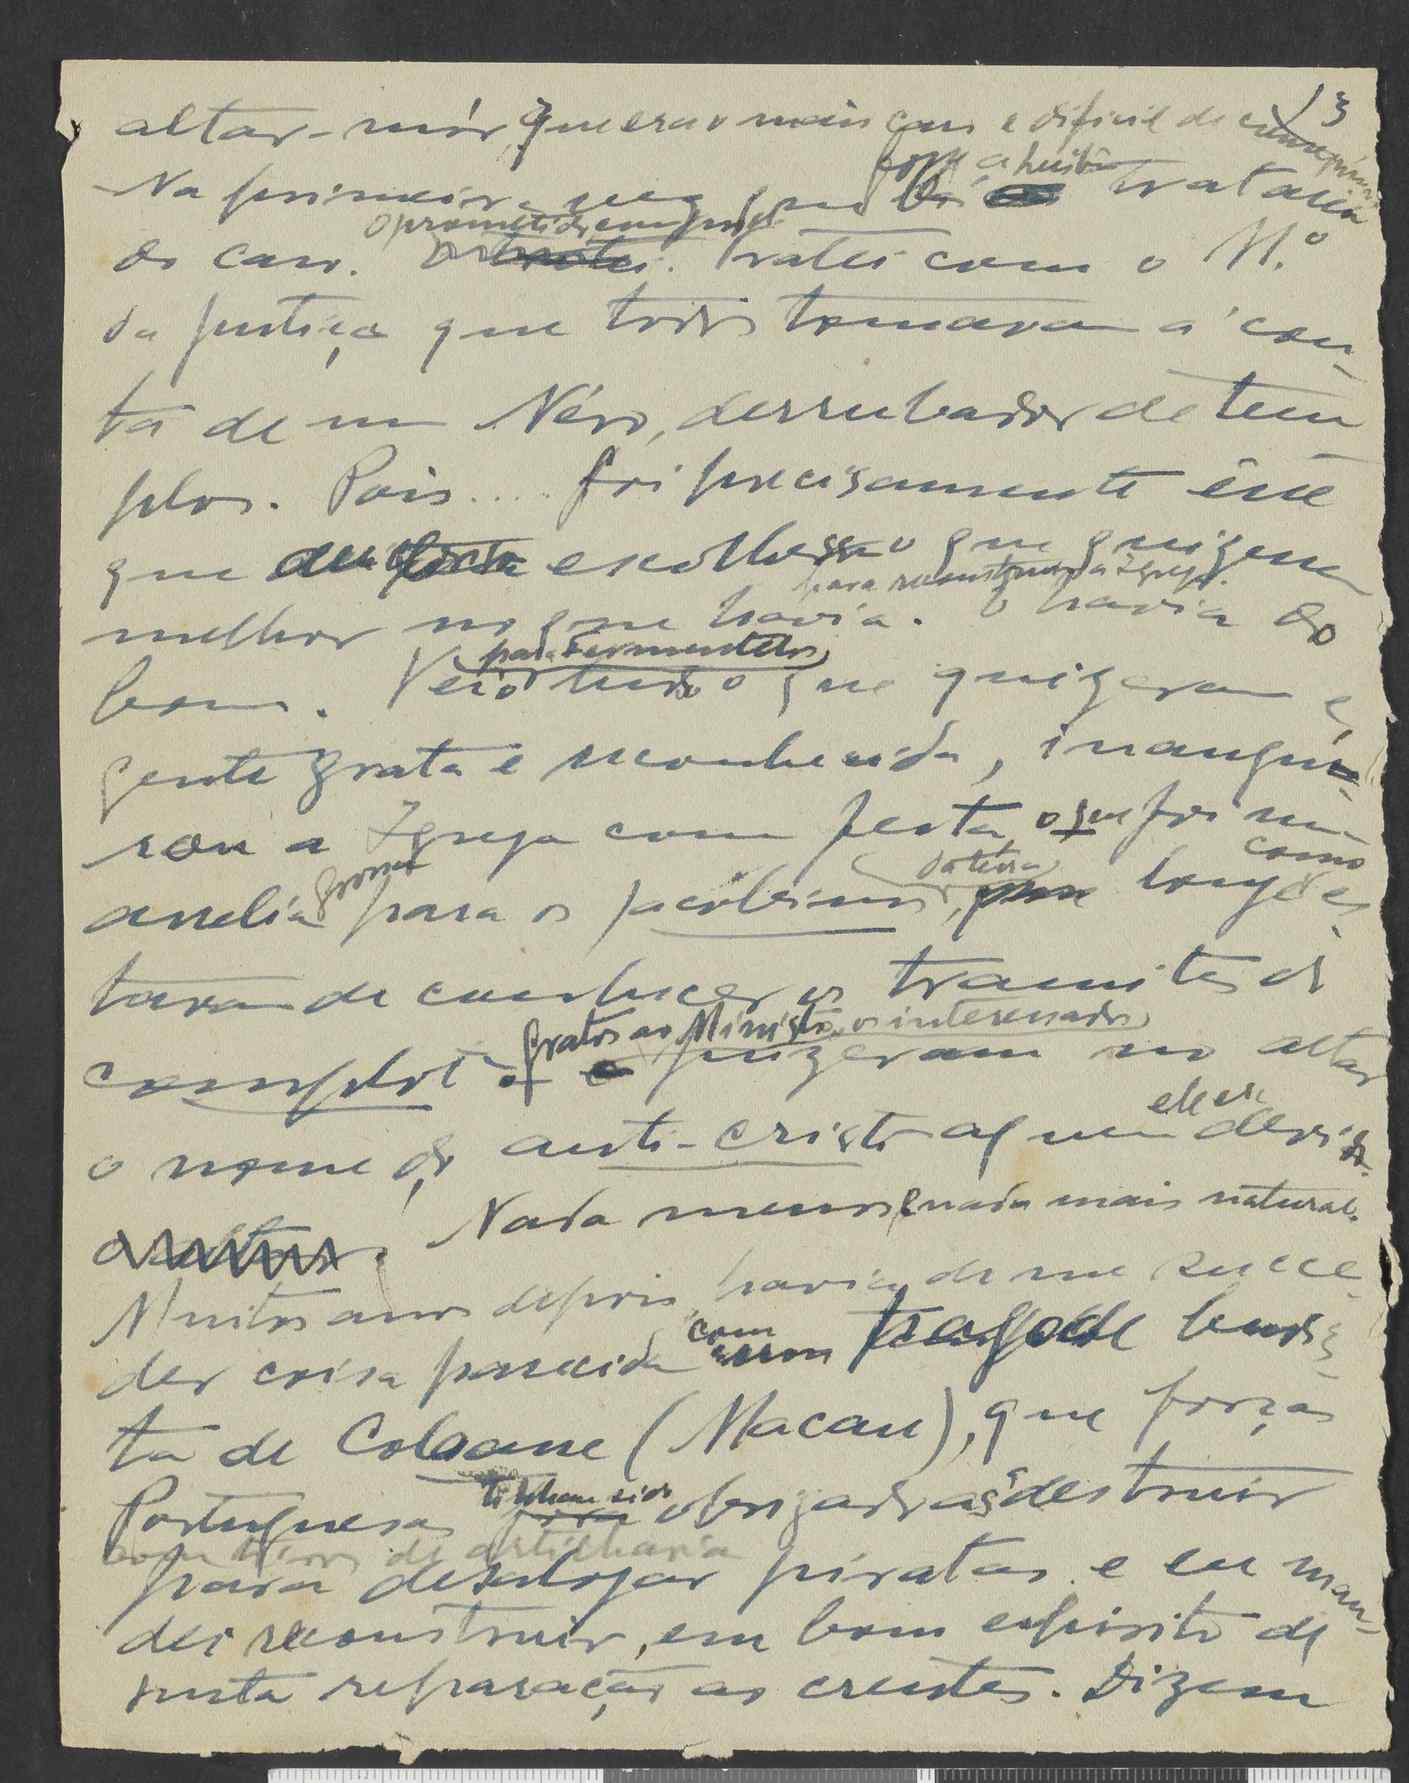 13
altar-mór, que era o mais caro e dificil de conseguir.
Na primeira vez que fosse a Lisbôa trataria
do caso. O prometido cumpri. Tratei com o M.º
da Justiça que todos tomavam á con-
ta de um Néro, derrubador de tem
plos. Pois.... foi precisamente êsse
que escolhesse o que quizesse
melhor no que havia. para reconstrução da Igreja. O havia do
bom. Veio tudo o que quizeram para Fermentelos, e,
gente grata e reconhecida, inaugu-
rou a Igreja com festa, o que foi uma
arrelia grossa para os jacobinos da terra, como longe es-
tavam de conhecer os tramites do
complot. Gratos ao Ministro os interessados puzeram no altar
o nome do anti-cristo a quem ele se devia.
Nada menos e nada mais natural.
Muitos anos depois, havia de me succe-
der coisa parecida com um pagode budis-
ta de Coloane (Macau), que forças
Portuguesas tinham sido obrigadas a destruir
com tiros de artilharia
para desalojar piratas e eu man-
dei reconstruir, em bom espirito de
justa reparação ao crentes. Dizem